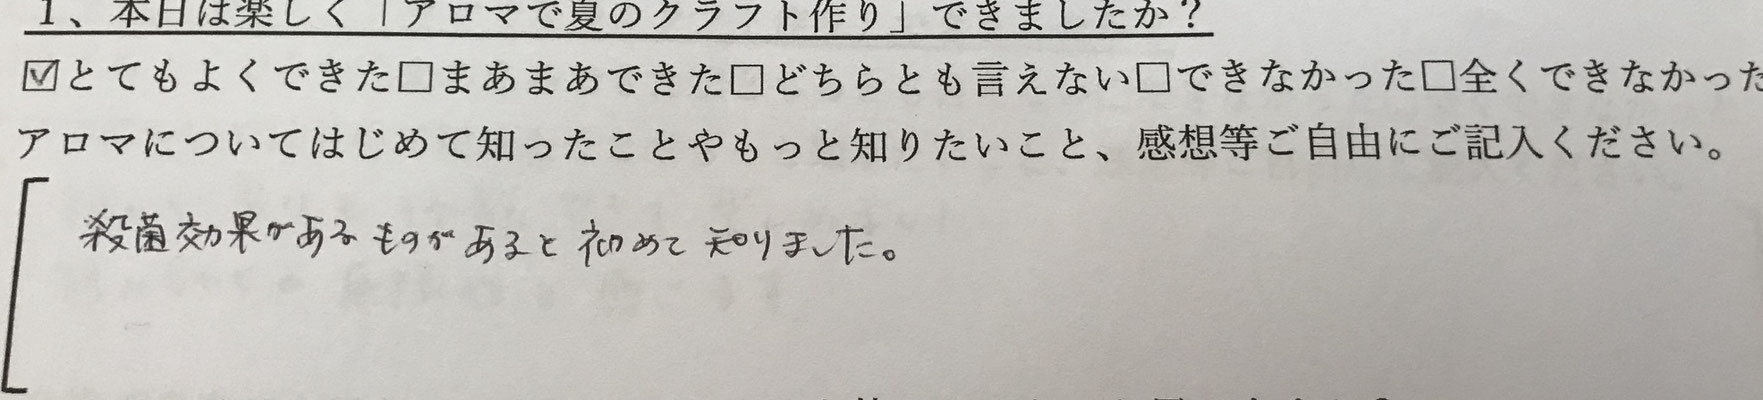 1、本日は楽しく「アロマで夏のクラフト作り」できましたか？
☑とてもよくできた□まあまあできた□どちらとも言えない□できなかった□全くできなかった
アロマについてはじめて知ったことやもっと知りたいこと、感想等ご自由にご記入ください。
殺菌効果があるものがあると初めて知りました。